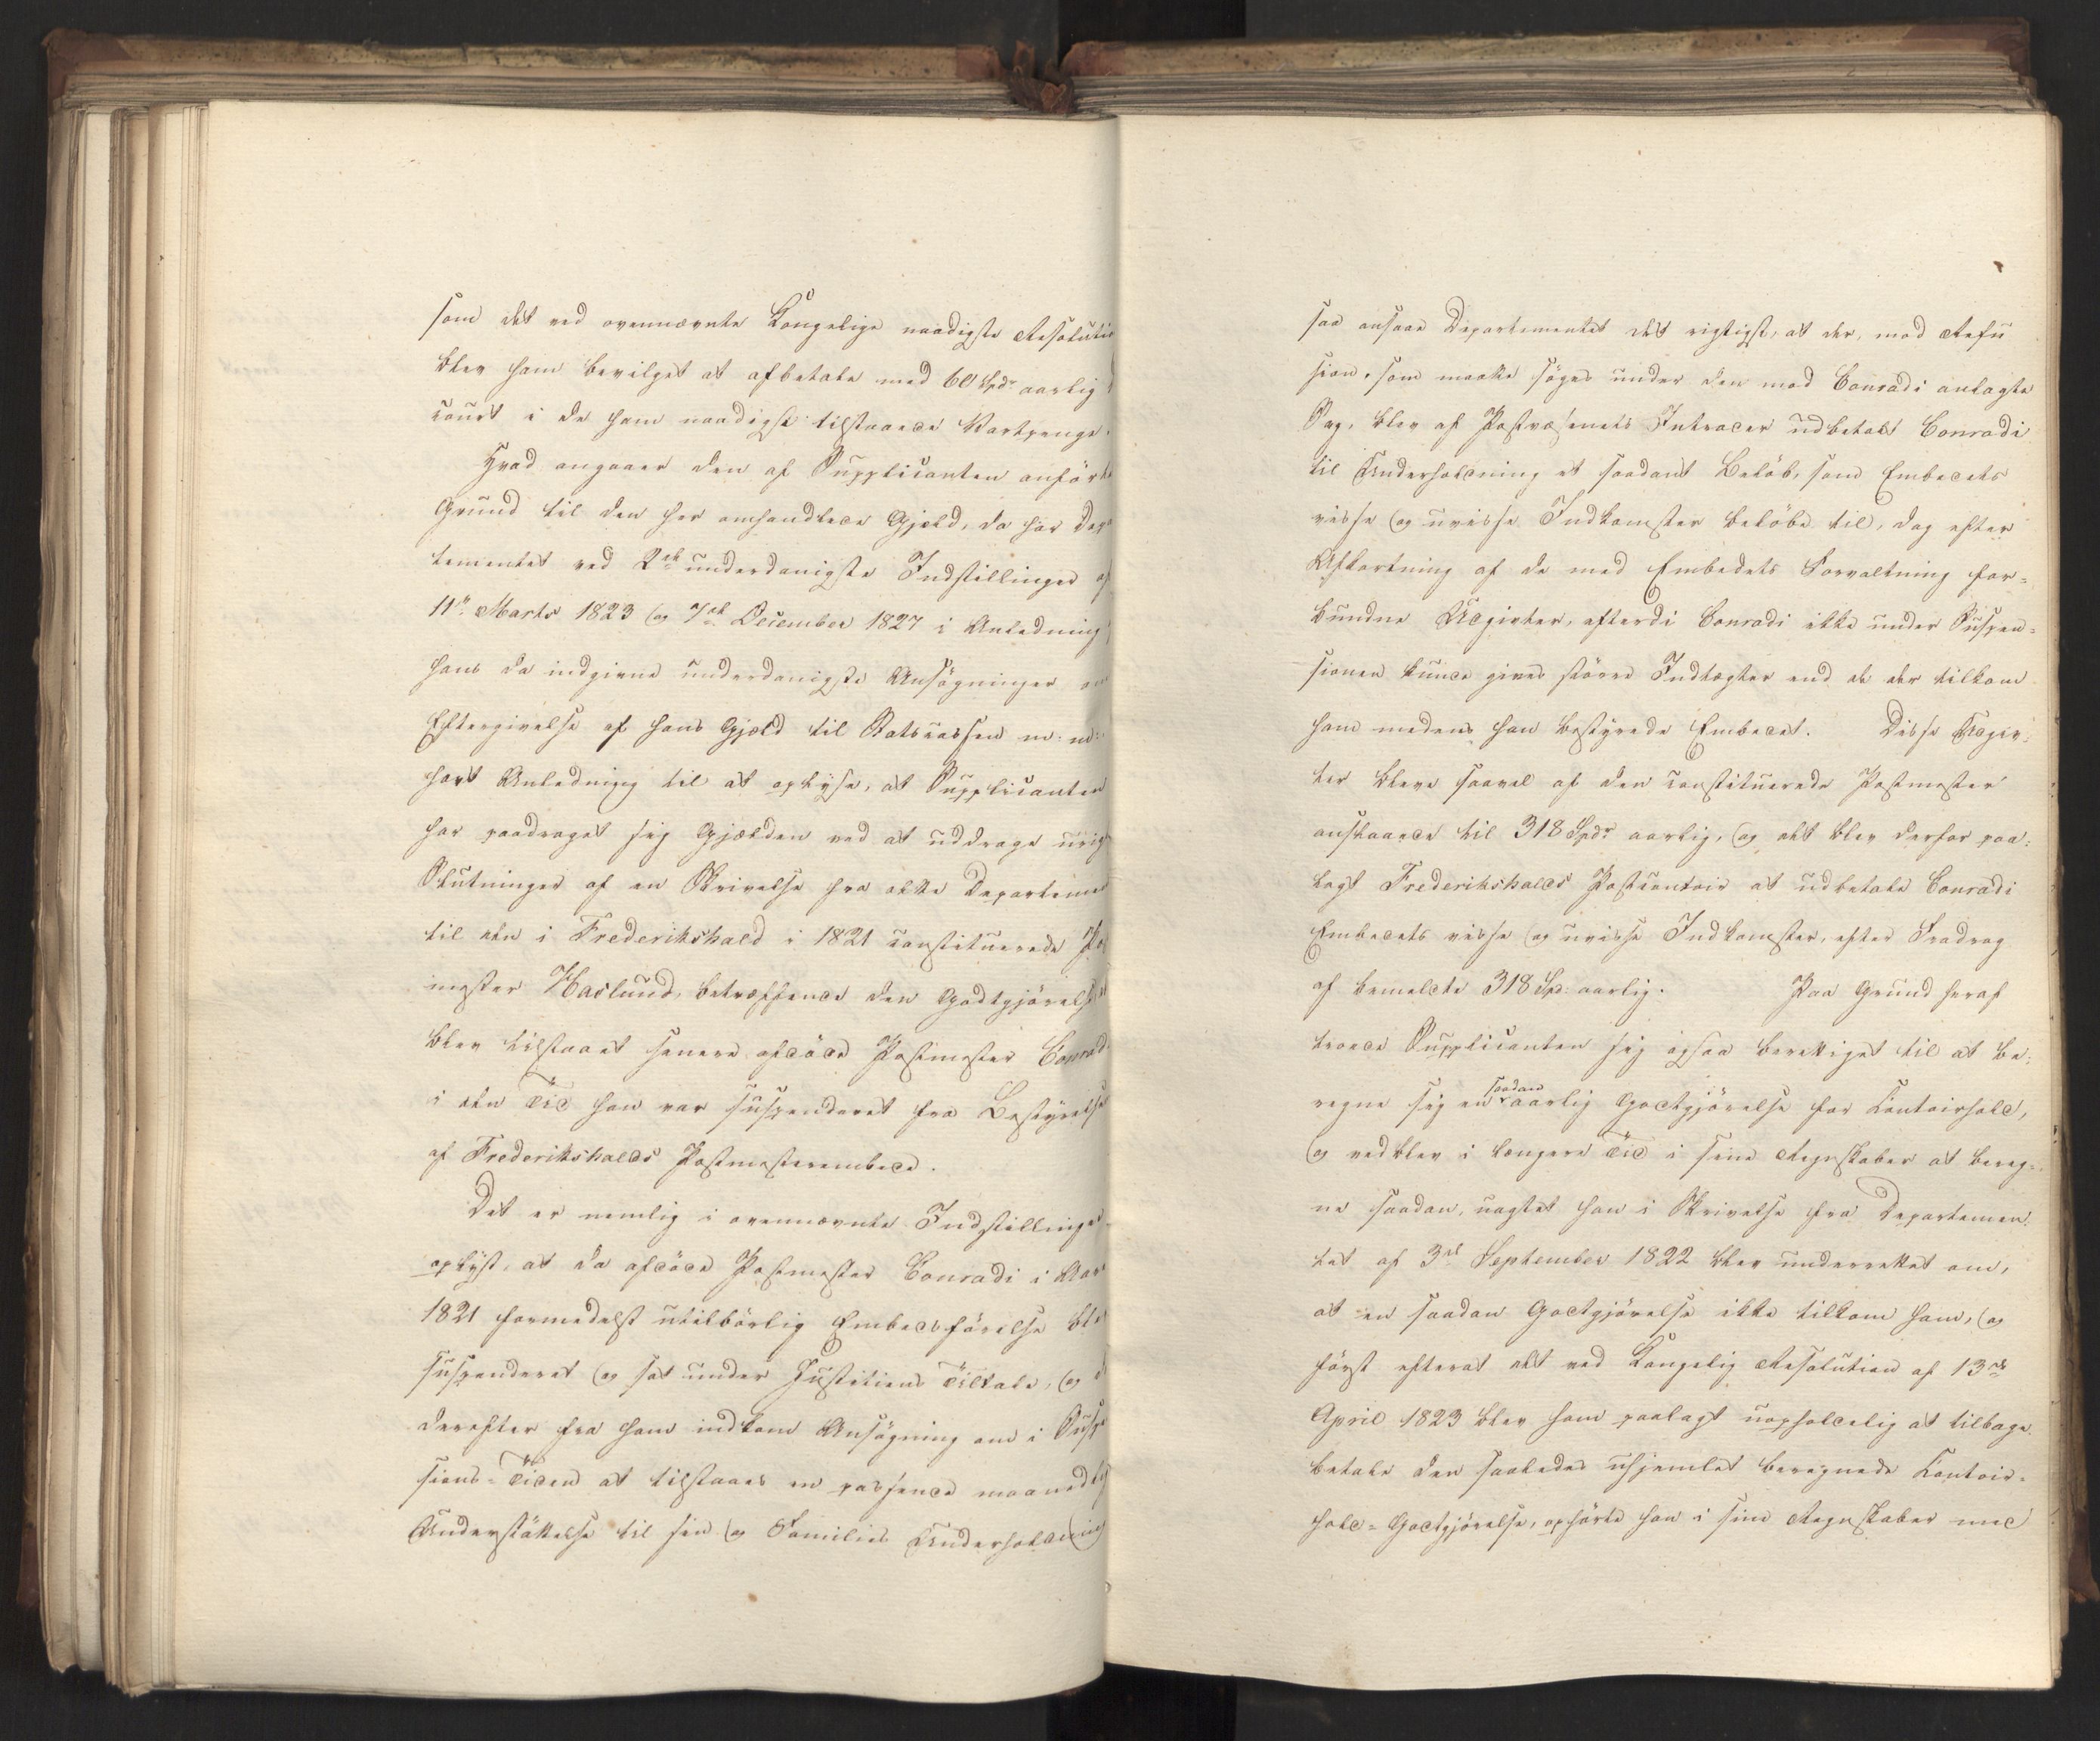 som det ved ovennævnte Kongelige naadigste Resolutio
blev ham bevilget at afbetale med 60 Spdr aarlig
court i de ham naadigst tilstaaede Vartpenge.
Hvad angaaer den af Supplicanten anførte
Grund til den her omhandlede Gjeld, da har Depa
tementet ved 2de underdanigste Indstillinger af
11te Marts 1823 og 7de December 1827 i Anledning
hans da indgivne underdanigste Ansøgninger om
Eftergivelse af hans Gjæld til Statscassen m: m:
havt Anledning til at oplyse, at Supplicanten
har paadraget sig Gjælden ved at uddrage urig
Slutninger af en Skrivelse fra dette Departeme
til den i Frederikshald i 1821 constituerede Po
mester Haslund, betræffende den Godtgjørelse
blev tilstaaet senere afdøde Postmester Conrad
i den Tid han var suspenderet fra Bestyrelse
af Frederikshalds Postmesterembede.
Det er nemlig i ovennævnte Indstillinger
oplyst, at da afdøde Postmester Conradi i Aar
1821 formedelst utilbørlig Embedsførelse ble
suspenderet og sat under Justitiens Tiltale, og d
derefter fra ham indkom Ansøgning om i Susp
sions-Tiden at tilstaaes en passende maanedlig
Understøttelse til sin og Families Underholdning
saa ansaae Departementet det rigtigst, at der, mod Refu
sion, som maatte søges under den mod Conradi anlagte
Sag, blev af Postvæsenets Intrader udbetalt Conradi
til Underholdning et saadant Beløb, som Embedets
visse og uvisse Indkomster beløbe til, dog efter
Afkortning af de med Embedets Forvaltning for=
bundne Udgivter, efterdi Conradi ikke under Suspen=
sionen kunde gives større Indtægter end de der tilkom
ham medens han bestyrede Embedet. Disse Udgiv=
ter bleve saavel af den constituerede Postmester
anslaaede til 318 Spdr aarlig, og det blev derfor paa=
lagt Frederikshalds Postcontoir at udbetale Conradi
Embedets visse og uvisse Indkomster, efter Fradrag
af bemeldte 318 Spd: aarlig. Paa Grund heraf
troede Supplicanten sig ogsaa berettiget til at be=
regne sig en saadan aarlig Godtgjørelse for Contoirhold,
og vedblev i længere Tid i sine Regnskaber at bereg=
ne saadan, uagtet han i Skrivelse fra Departemen
tet af 3de September 1822 blev underrettet om,
at en saadan Godtgjørelse ikke tilkom ham, og
først efterat det ved Kongelig Resolution af 13de
April 1823 blev ham paalagt uopholdelig at tilbage
betale den saaledes uhjemlet beregnede Contoir=
hold=Godtgjørelse, ophørte han i sine Regnskaber med